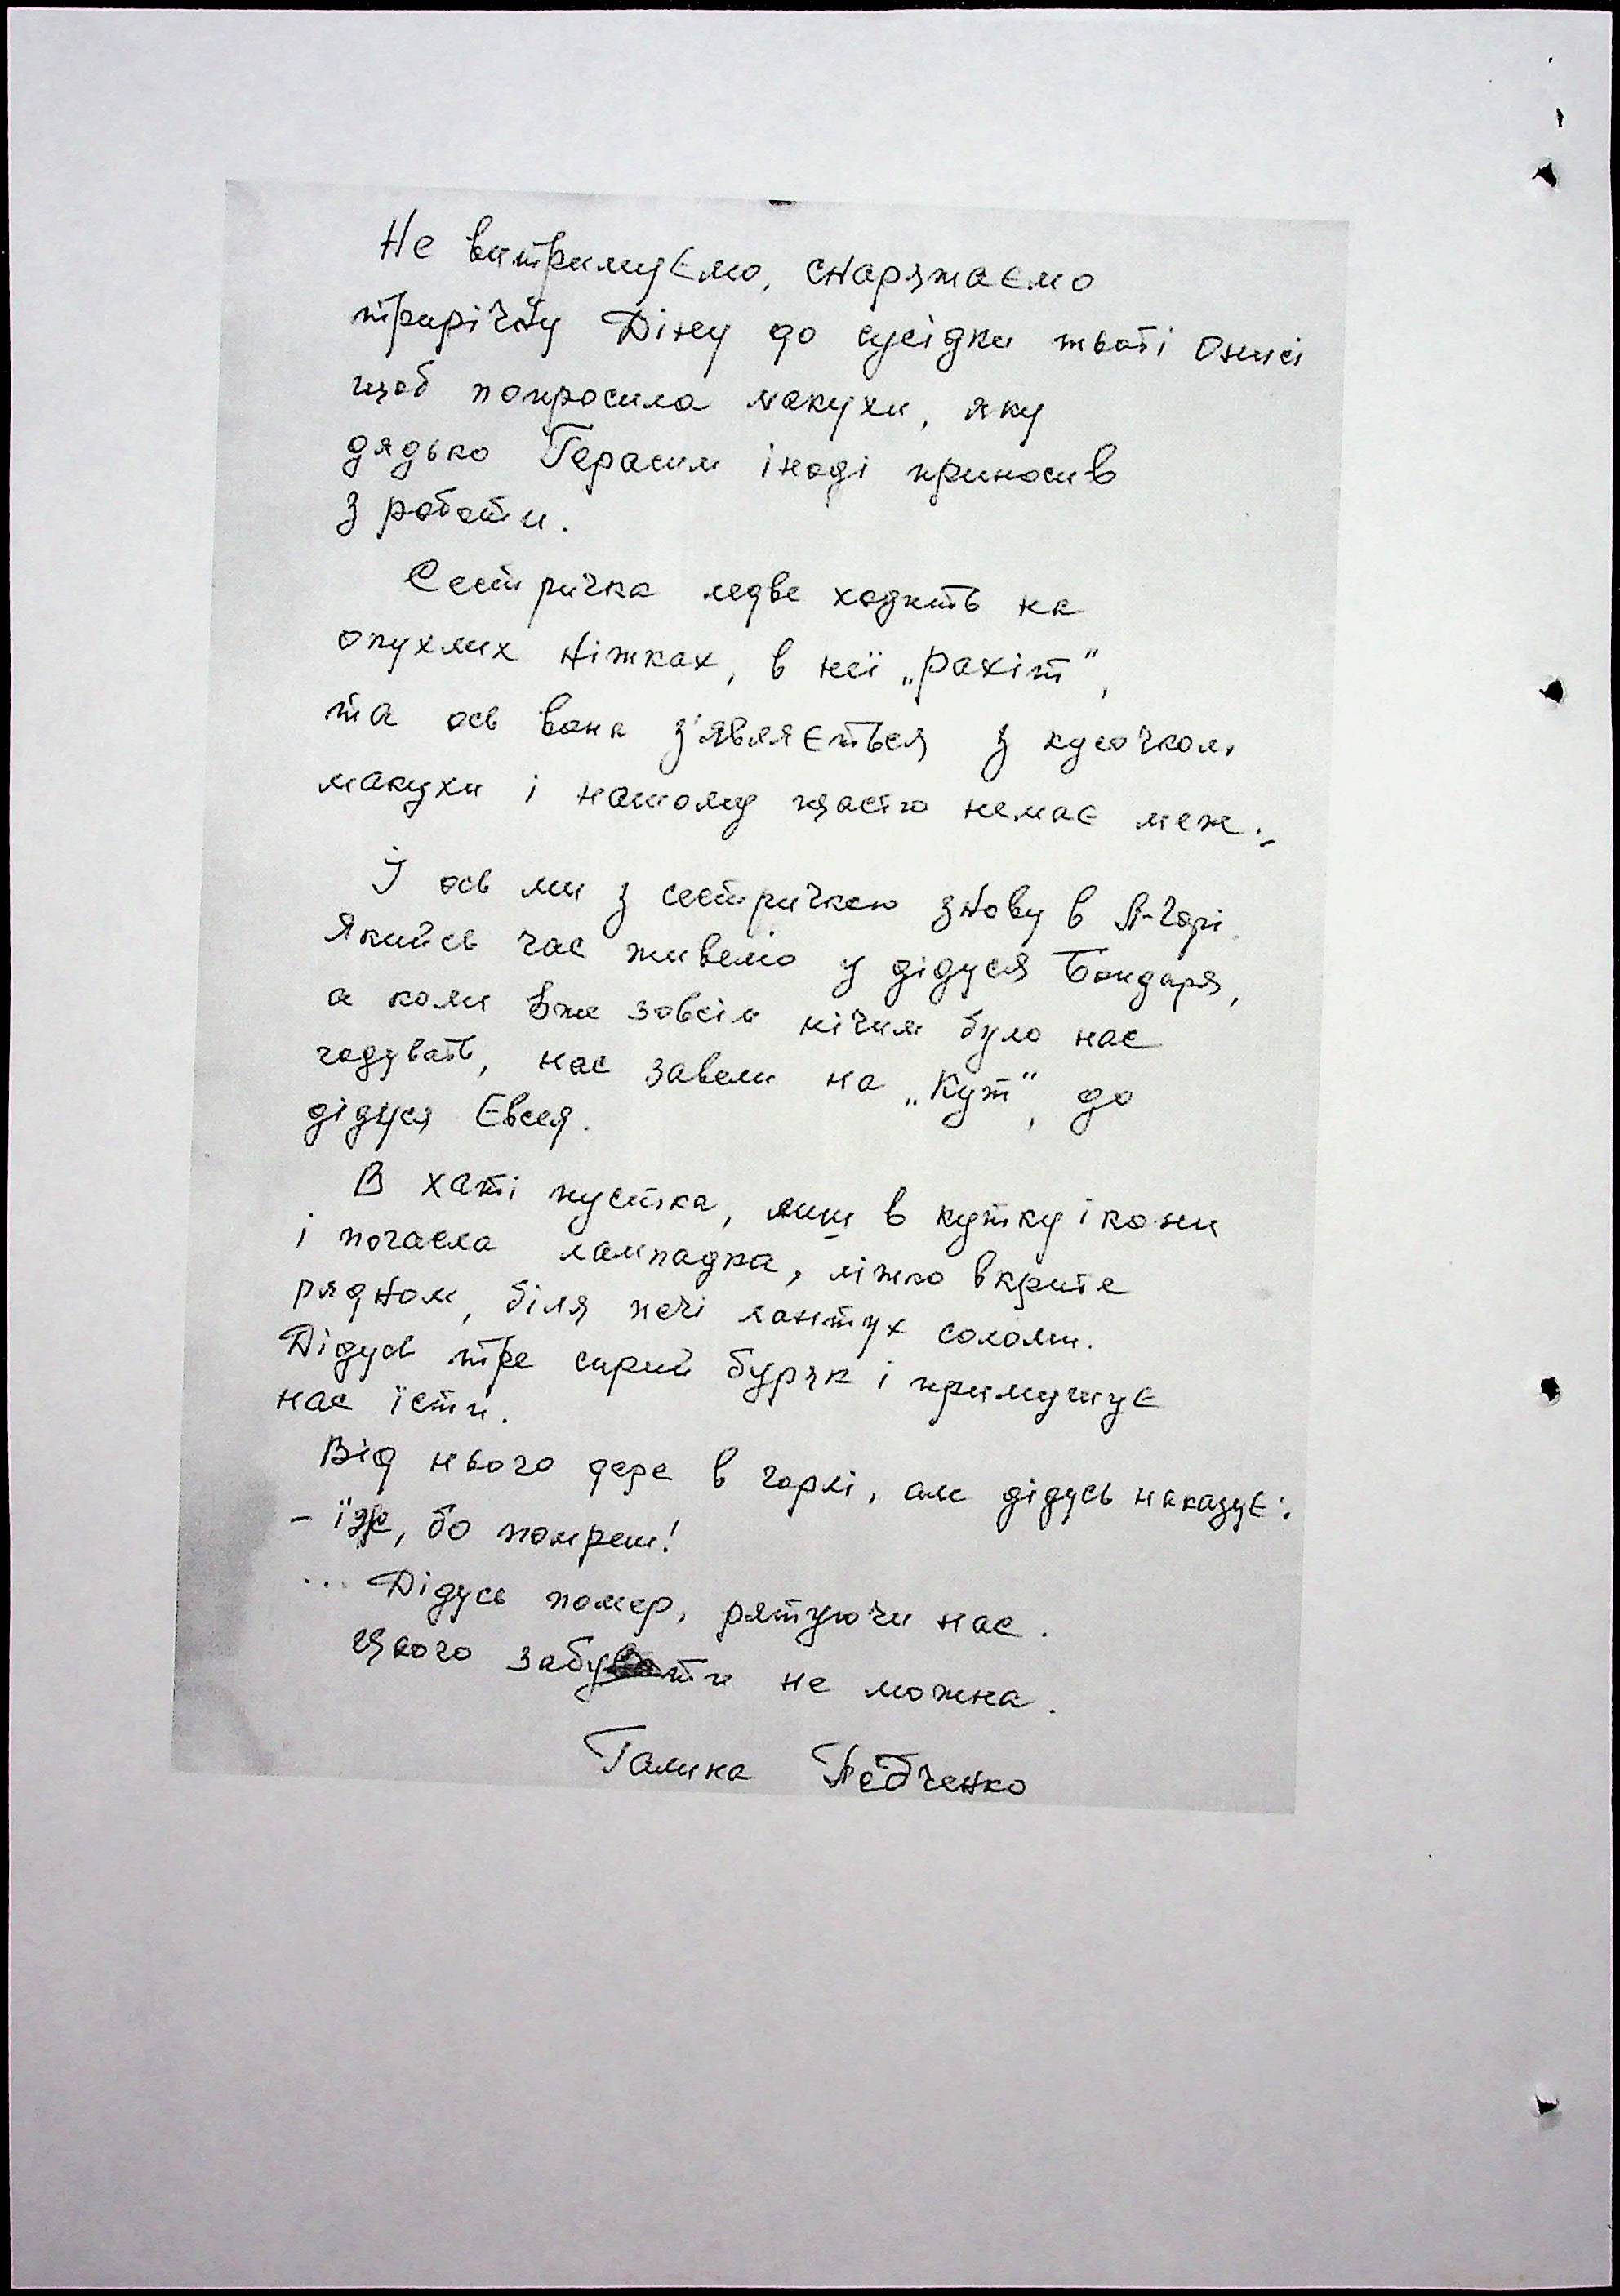 Не витримуємо, снаряжаємо
трирічну Діну до сусідки тьоті Онисі
щоб попросила макухи, яку
дядько Герасим іноді приносив
з роботи.
Сестричка ледве ходить на
опухлих ніжках, в неї „рахіт",
та ось вона з'являється з кусочком
макухи і нашому щастю немає меж..
І ось ми з сестричкою знову в Л-Горі.
Якийсь час живемо у дідуся Бондаря,
а коли вже зовсім нічим було нас
годувать, нас завели на „Кут", до
дідуся Євсея.
В хаті пустка, лиш в кутку ікони
і погасла лампадка, ліжко вкрите
рядном, біля печі лантух соломи.
Дідусь тре сирий буряк і примушує
нас їсти.
Від нього дере в горлі, але дідусь наказує:
- їж, бо помреш!
... Дідусь помер, рятуючи нас.
Цього забути не можна.
Галина